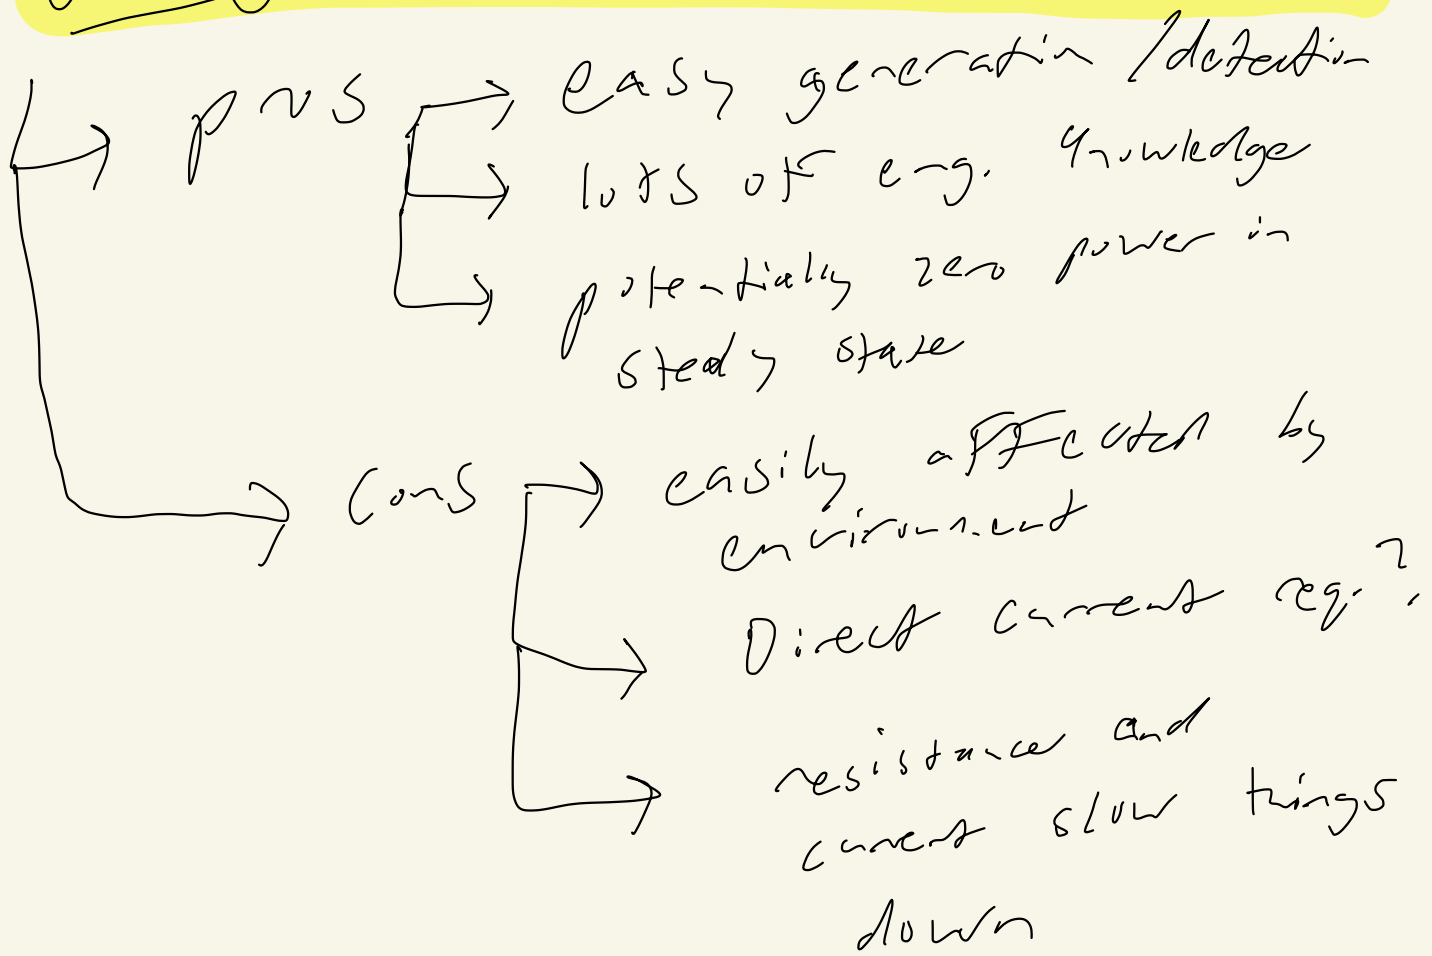 pros
easy generation/detection
lots of eng. knowledge
potentially zero power in
steady state
cons
easily affected by
environment
Direct current req.?
resistance and
current slow things
down